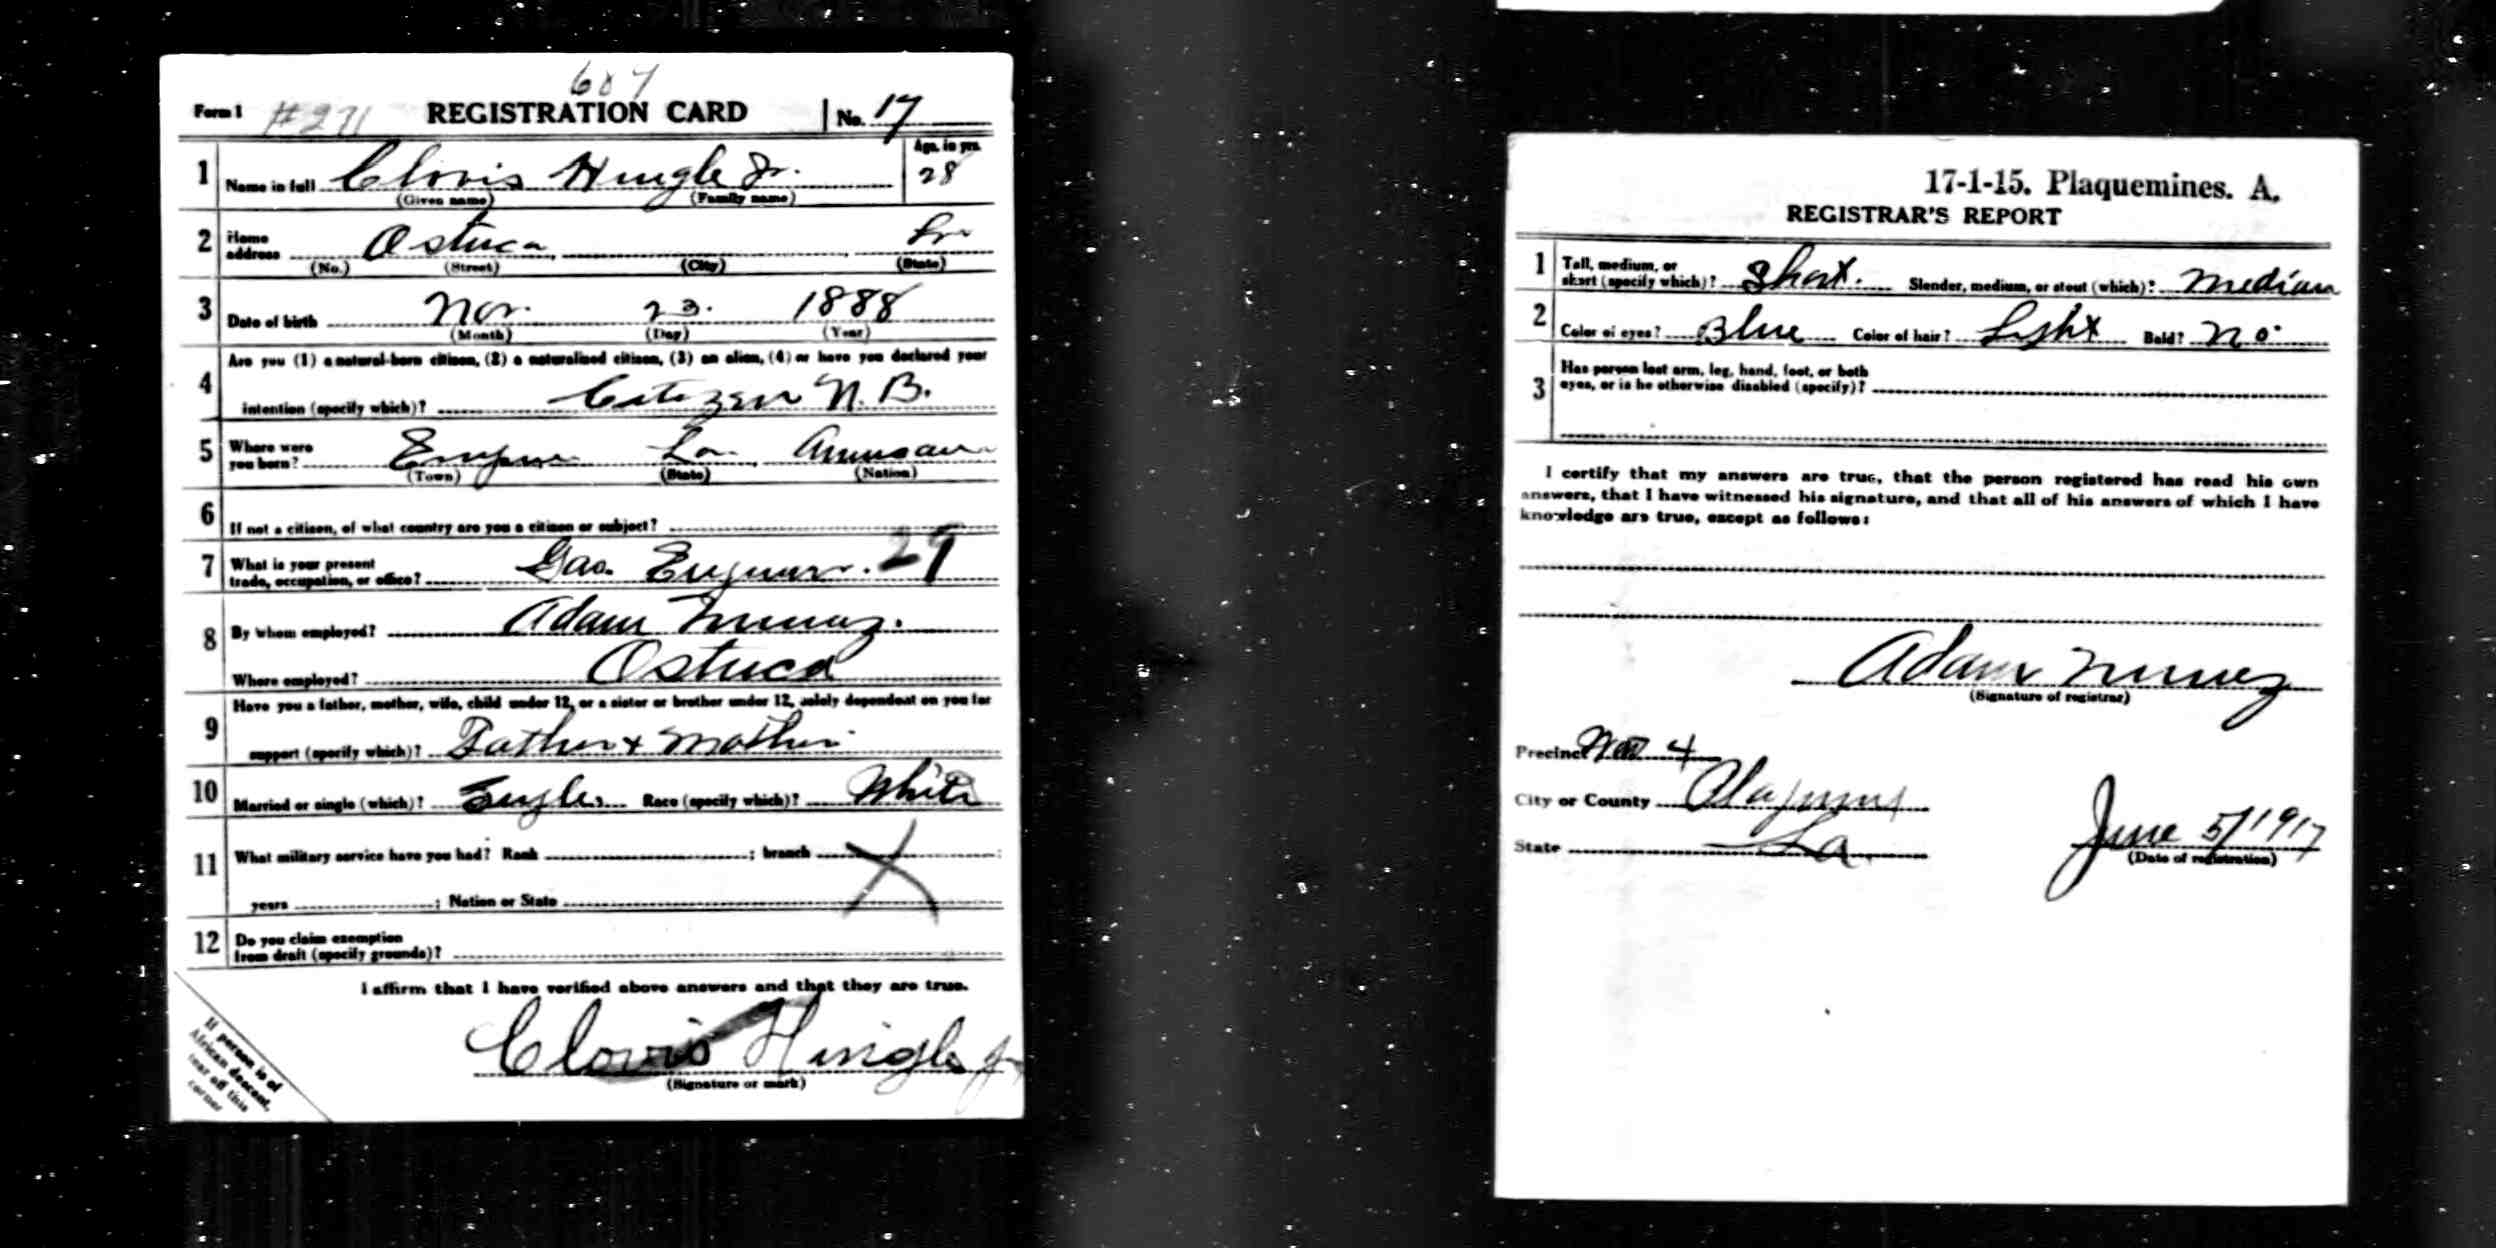 607
Form 1 #271 REGISTRATION CARD No. 17
1 Name in full Clovis Hingle Jr. Age, in yrs. 28
(Given name) (Family name)
2 Home address Ostrica La
(No.) (Street) (City) (State)
3 Date of birth Nov. 23. 1888
(Month) (Day) (Year)
4 Are you (1) a natural-born citizen, (2) a naturalized citizen, (3) an alien, (4) or have you declared your
intention (specify which)? Citizen N. B.
5 Where were you born? Empire La. American
(Town) (State) (Nation)
6 If not a citizen, of what country are you a citizen or subject?
7 What is your present
trade, occupation, or office? Gas. Engineer. 29
8 By whom employed? Adam Nunez.
Where employed? Ostrica
9 Have you a father, mother, wife, child under 12, or a sister or brother under 12, solely dependent on you for
support (specify which)? Father + Mother
10 Married or single (which)? Single. Race (specify which)? White
11 What military service have you had? Rank ; branch X
years ; Nation or State
12 Do you claim exemption
from draft (specify grounds)?
I affirm that I have verified above answers and that they are true.
Clovis Hingle Jr
(Signature or mark)
If person is of
African descent,
tear off this
corner
17-1-15. Plaquemines. A.
REGISTRAR'S REPORT
1 Tall, medium, or
short (specify which)? Short. Slender, medium, or stout (which)? Medium
2 Color of eyes? Blue Color of hair? Light Bald? No
3 Has person lost arm, leg, hand, foot, or both
eyes, or is he otherwise disabled (specify)?
I certify that my answers are true, that the person registered has read his own
answers, that I have witnessed his signature, and that all of his answers of which I have
knowledge are true, except as follows:
Adam Nunez
(Signature of registrar)
Precinct 4
City or County
State La.
June 5/1917
(Date of registration)